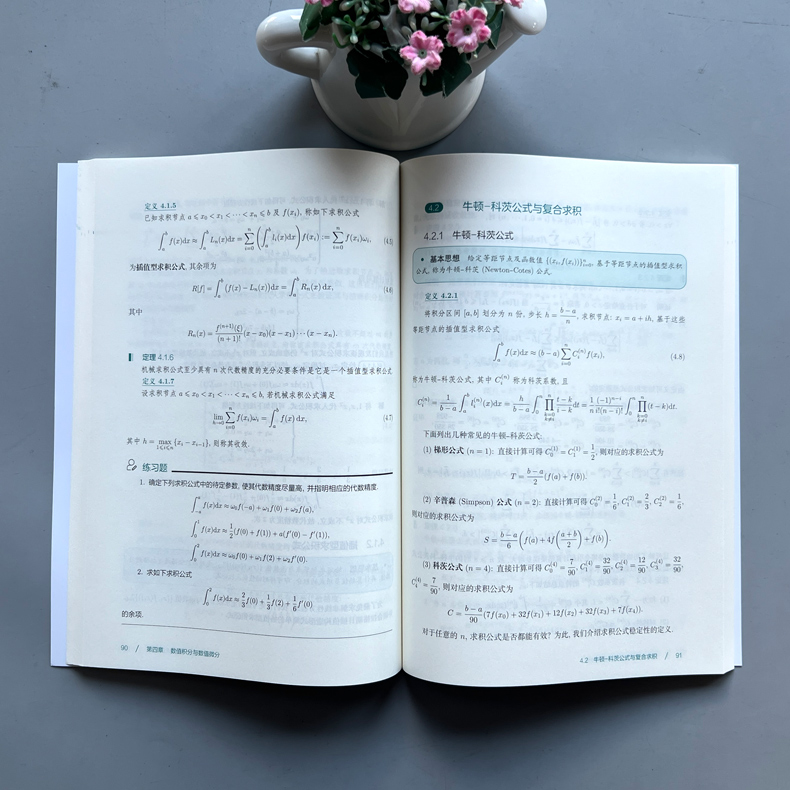 定义 4.1.5
已知求积节点 a ⩽ x₀ < x₁ < ··· < xₙ ⩽ b 及 f(xᵢ), 称如下求积公式
∫ₐᵇ f(x)dx ≈ ∫ₐᵇ Lₙ(x)dx = ∑ᵢ₌₀ⁿ (∫ₐᵇ lᵢ(x)dx) f(xᵢ) := ∑ᵢ₌₀ⁿ f(xᵢ)ωᵢ, (4.5)
为插值型求积公式, 其余项为
R[f] = ∫ₐᵇ (f(x) − Lₙ(x))dx = ∫ₐᵇ Rₙ(x) dx, (4.6)
其中
Rₙ(x) = f⁽ⁿ⁺¹⁾(ξ)/(n + 1)! (x − x₀)(x − x₁) ··· (x − xₙ).
定理 4.1.6
机械求积公式至少具有 n 次代数精度的充分必要条件是它是一个插值型求积公式
定义 4.1.7
设求积节点 a ⩽ x₀ < x₁ < ··· < xₙ ⩽ b, 若机械求积公式满足
lim_{h→0} ∑ᵢ₌₀ⁿ f(xᵢ)ωᵢ = ∫ₐᵇ f(x) dx, (4.7)
其中 h = max_{1⩽i⩽n} {xᵢ − xᵢ₋₁}, 则称其收敛.
练习题
1. 确定下列求积公式中的待定参数, 使其代数精度尽量高, 并指明相应的代数精度.
f(x)dx ≈ ω₀f(−a) + ω₁f(0) + ω₂f(a),
∫₀¹ f(x)dx ≈ 1/2 (f(0) + f(1)) + a(f′(0) − f′(1)),
∫₀² f(x)dx ≈ ω₀f(0) + ω₁f(2) + ω₂f′(0).
2. 求如下求积公式
∫₀² f(x)dx ≈ 2/3 f(0) + 1/3 f(2) + 1/6 f′(0)
的余项.
90 / 第四章 数值积分与数值微分
4.2 牛顿-科茨公式与复合求积
4.2.1 牛顿-科茨公式
• 基本思想 给定等距节点及函数值 {(xᵢ, f(xᵢ))}ⁿᵢ₌₀, 基于等距节点的插值型求积
公式, 称为牛顿-科茨 (Newton-Cotes) 公式.
定义 4.2.1
将积分区间 [a, b] 划分为 n 份, 步长 h = (b − a)/n, 求积节点: xᵢ = a + ih, 基于这些
等距节点的插值型求积公式
∫ₐᵇ f(x)dx ≈ (b − a) ∑ᵢ₌₀ⁿ Cᵢ⁽ⁿ⁾ f(xᵢ), (4.8)
称为牛顿-科茨公式, 其中 Cᵢ⁽ⁿ⁾ 称为科茨系数, 且
Cᵢ⁽ⁿ⁾ = 1/(b − a) ∫ₐᵇ lᵢ⁽ⁿ⁾(x)dx = h/(b − a) ∫₀ⁿ ∏_{k=0, k≠i}ⁿ (t − k)/(i − k) dt = 1/n (−1)ⁿ⁻ⁱ/(i!(n − i)!) ∫₀ⁿ ∏_{k=0, k≠i}ⁿ (t − k)dt.
下面列出几种常见的牛顿-科茨公式:
(1) 梯形公式 (n = 1): 直接计算可得 C₀⁽¹⁾ = C₁⁽¹⁾ = 1/2, 则对应的求积公式为
T = (b − a)/2 (f(a) + f(b)).
(2) 辛普森 (Simpson) 公式 (n = 2): 直接计算可得 C₀⁽²⁾ = 1/6, C₁⁽²⁾ = 2/3, C₂⁽²⁾ = 1/6,
则对应的求积公式为
S = (b − a)/6 (f(a) + 4f((a + b)/2) + f(b)).
(3) 科茨公式 (n = 4): 直接计算可得 C₀⁽⁴⁾ = 7/90, C₁⁽⁴⁾ = 32/90, C₂⁽⁴⁾ = 12/90, C₃⁽⁴⁾ = 32/90,
C₄⁽⁴⁾ = 7/90, 则对应的求积公式为
C = (b − a)/90 (7f(x₀) + 32f(x₁) + 12f(x₂) + 32f(x₃) + 7f(x₄)).
对于任意的 n, 求积公式是否都能有效? 为此, 我们介绍求积公式稳定性的定义.
4.2 牛顿-科茨公式与复合求积 / 91